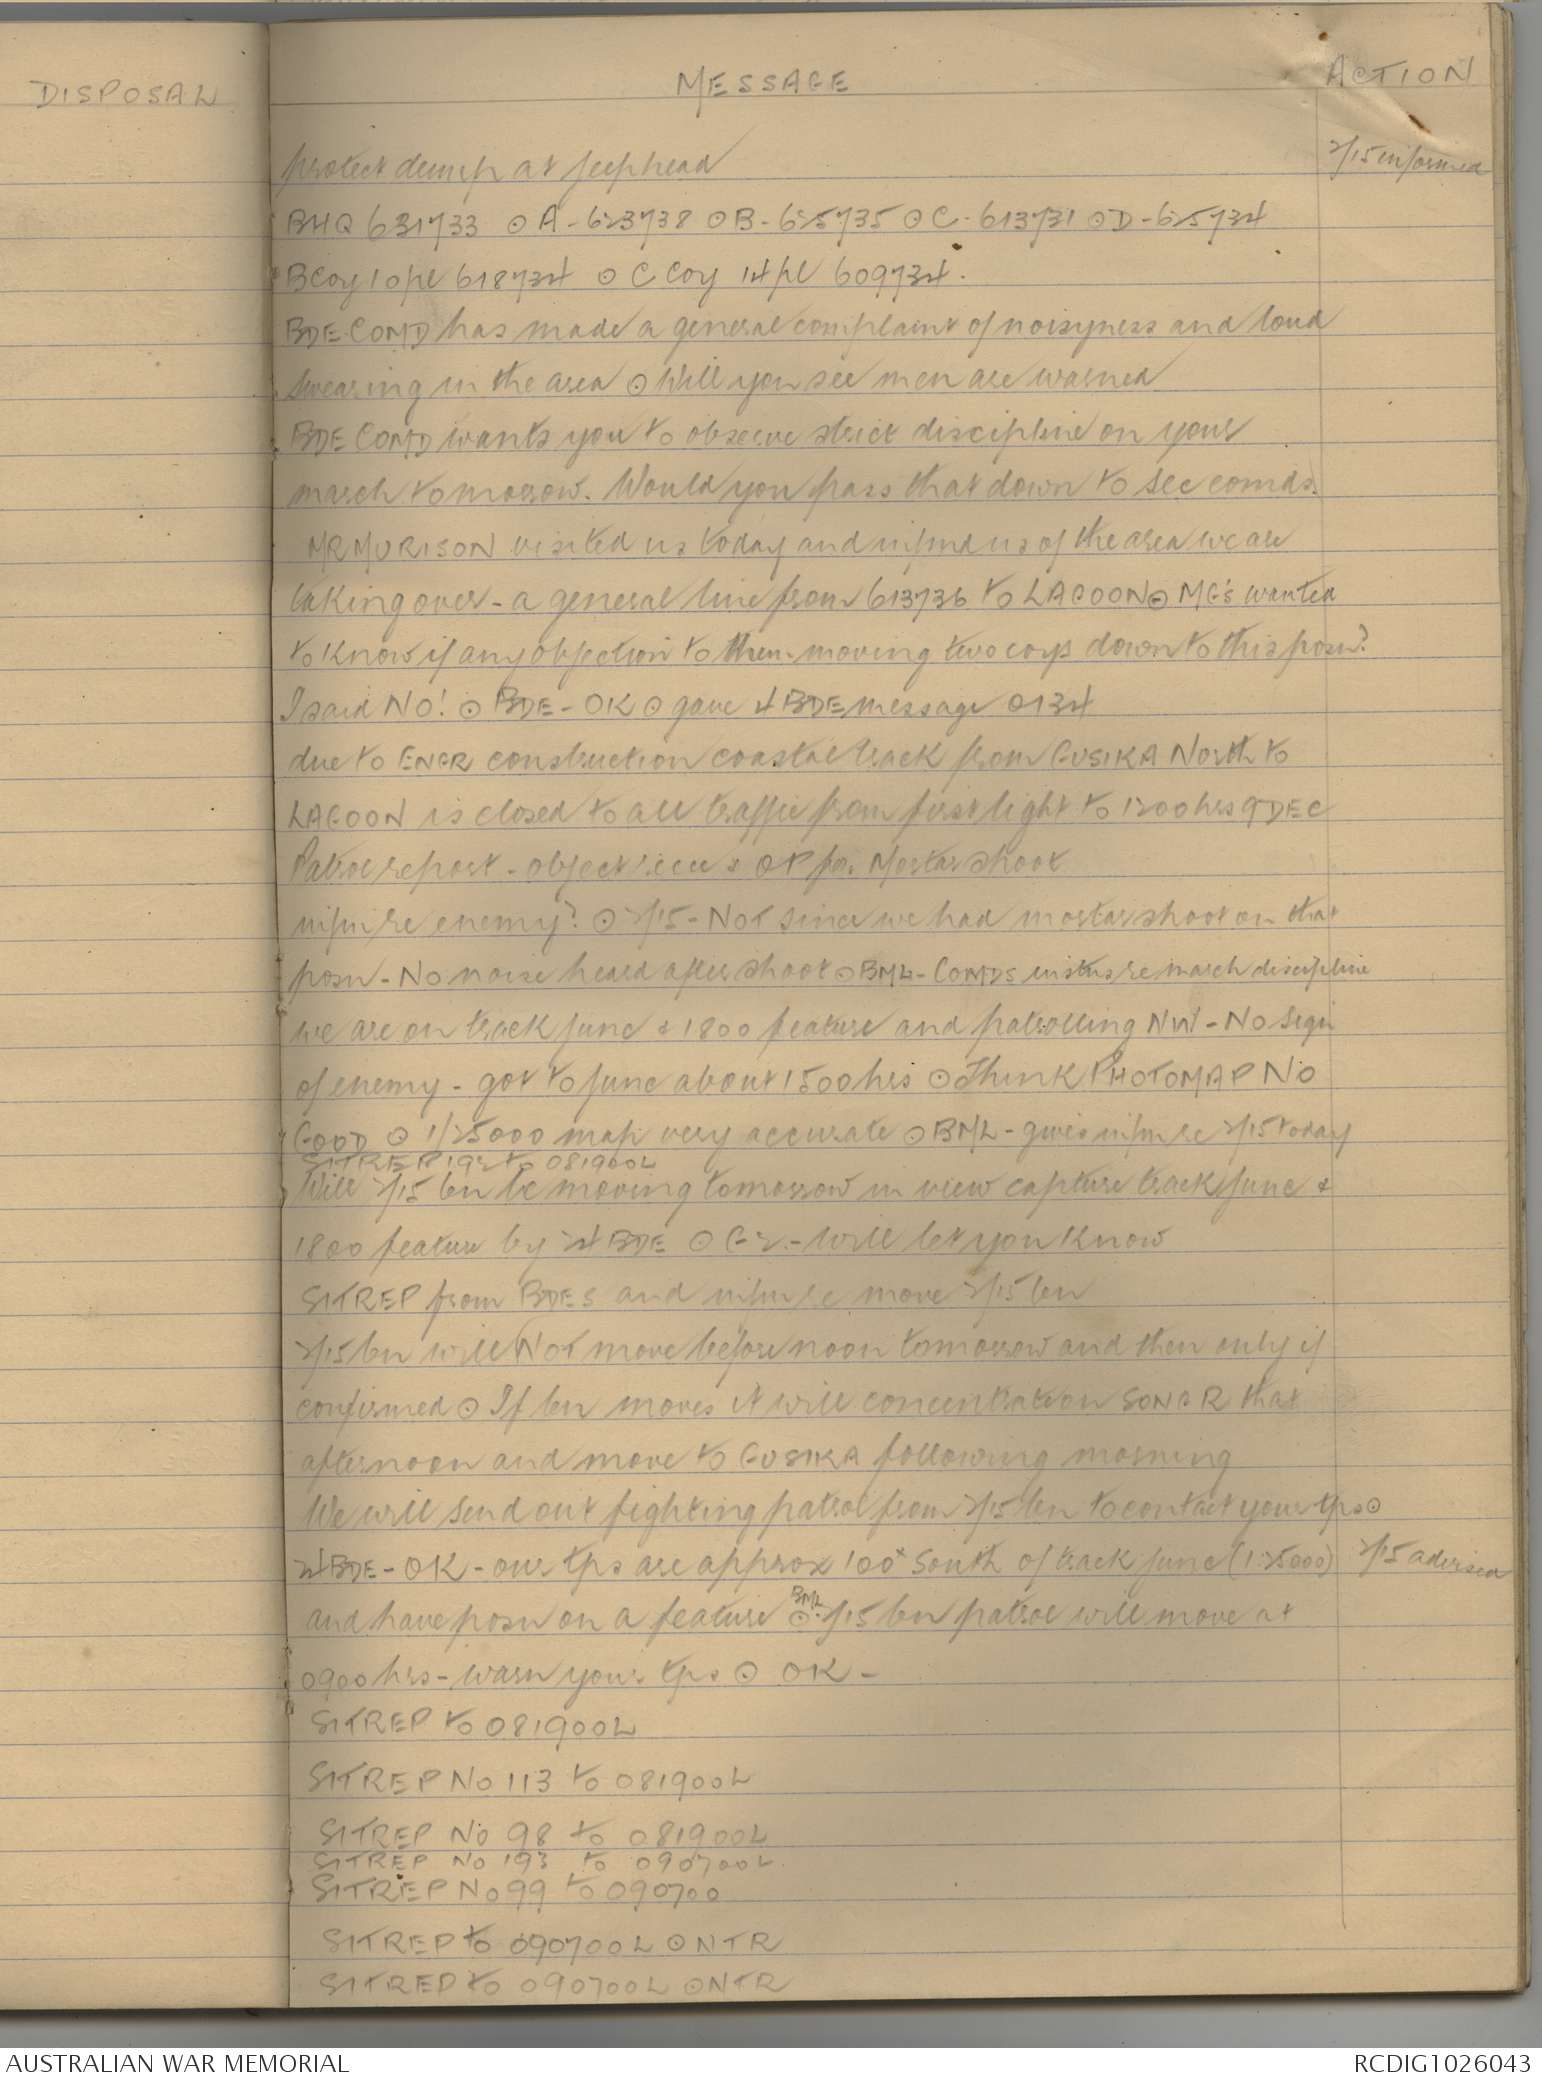 DISPOSAL
MESSAGE
ACTION
protect dump at jeephead
2/15 informed
BHQ 631733 ⊙ A - 623738 ⊙ B - 625735 ⊙ C - 613731 ⊙ D - 625734
B Coy 10 pl 618734 ⊙ C Coy 14 pl 609734.
BDE COMD has made a general complaint of noisyness and loud
swearing in the area ⊙ Will you see men are warned
BDE COMD wants you to observe strict discipline on your
march tomorrow. Would you pass that down to sec comds.
MR MURISON visited us today and infmd us of the area we are
taking over - a general line from 613736 to LAGOON ⊙ MG's wanted
to know if any objection to them moving two coys down to this posn?
I said NO! ⊙ BDE - OK ⊙ gave 4 BDE message 0134
due to ENGR construction coastal track from GUSIKA North to
LAGOON is closed to all traffic from first light to 1200 hrs 9 DEC
Patrol report - object recce & OP for Mortar shoot
infm re enemy? ⊙ 2/15 - NOT since we had mortar shoot on that
posn - No noise heard after shoot ⊙ BML - COMDS instns re march discipline
we are on track junc & 1800 feature and patrolling NW - No sign
of enemy - got to junc about 1500 hrs ⊙ Think PHOTOMAP NO
GOOD ⊙ 1/25000 map very accurate ⊙ BML - gives infm re 2/15 today
SITREP 192 to 081900L
Will 2/15 bn be moving tomorrow in view capture track junc &
1800 feature by 24 BDE ⊙ G2 - will let you know
SITREP from BDES and infm re move 2/15 bn
2/15 bn will NOT move before noon tomorrow and then only if
confirmed ⊙ If bn moves it will concentrate on SONGR that
afternoon and move to GUSIKA following morning
We will send out fighting patrol from 2/15 bn to contact your tps ⊙
24 BDE - OK - our tps are approx 100x South of track junc (1:25000)
2/15 advised
and have posn on a feature ⊙ BML 2/15 bn patrol will move at
0900 hrs - warn your tps ⊙ OK -
SITREP to 081900L
SITREP No 113 to 081900L
SITREP No 98 to 081900L
SITREP No 193 to 090700L
SITREP No 99 to 090700
SITREP to 090700L ⊙ NTR
SITREP to 090700L ⊙ NTR
AUSTRALIAN WAR MEMORIAL
RCDIG1026043